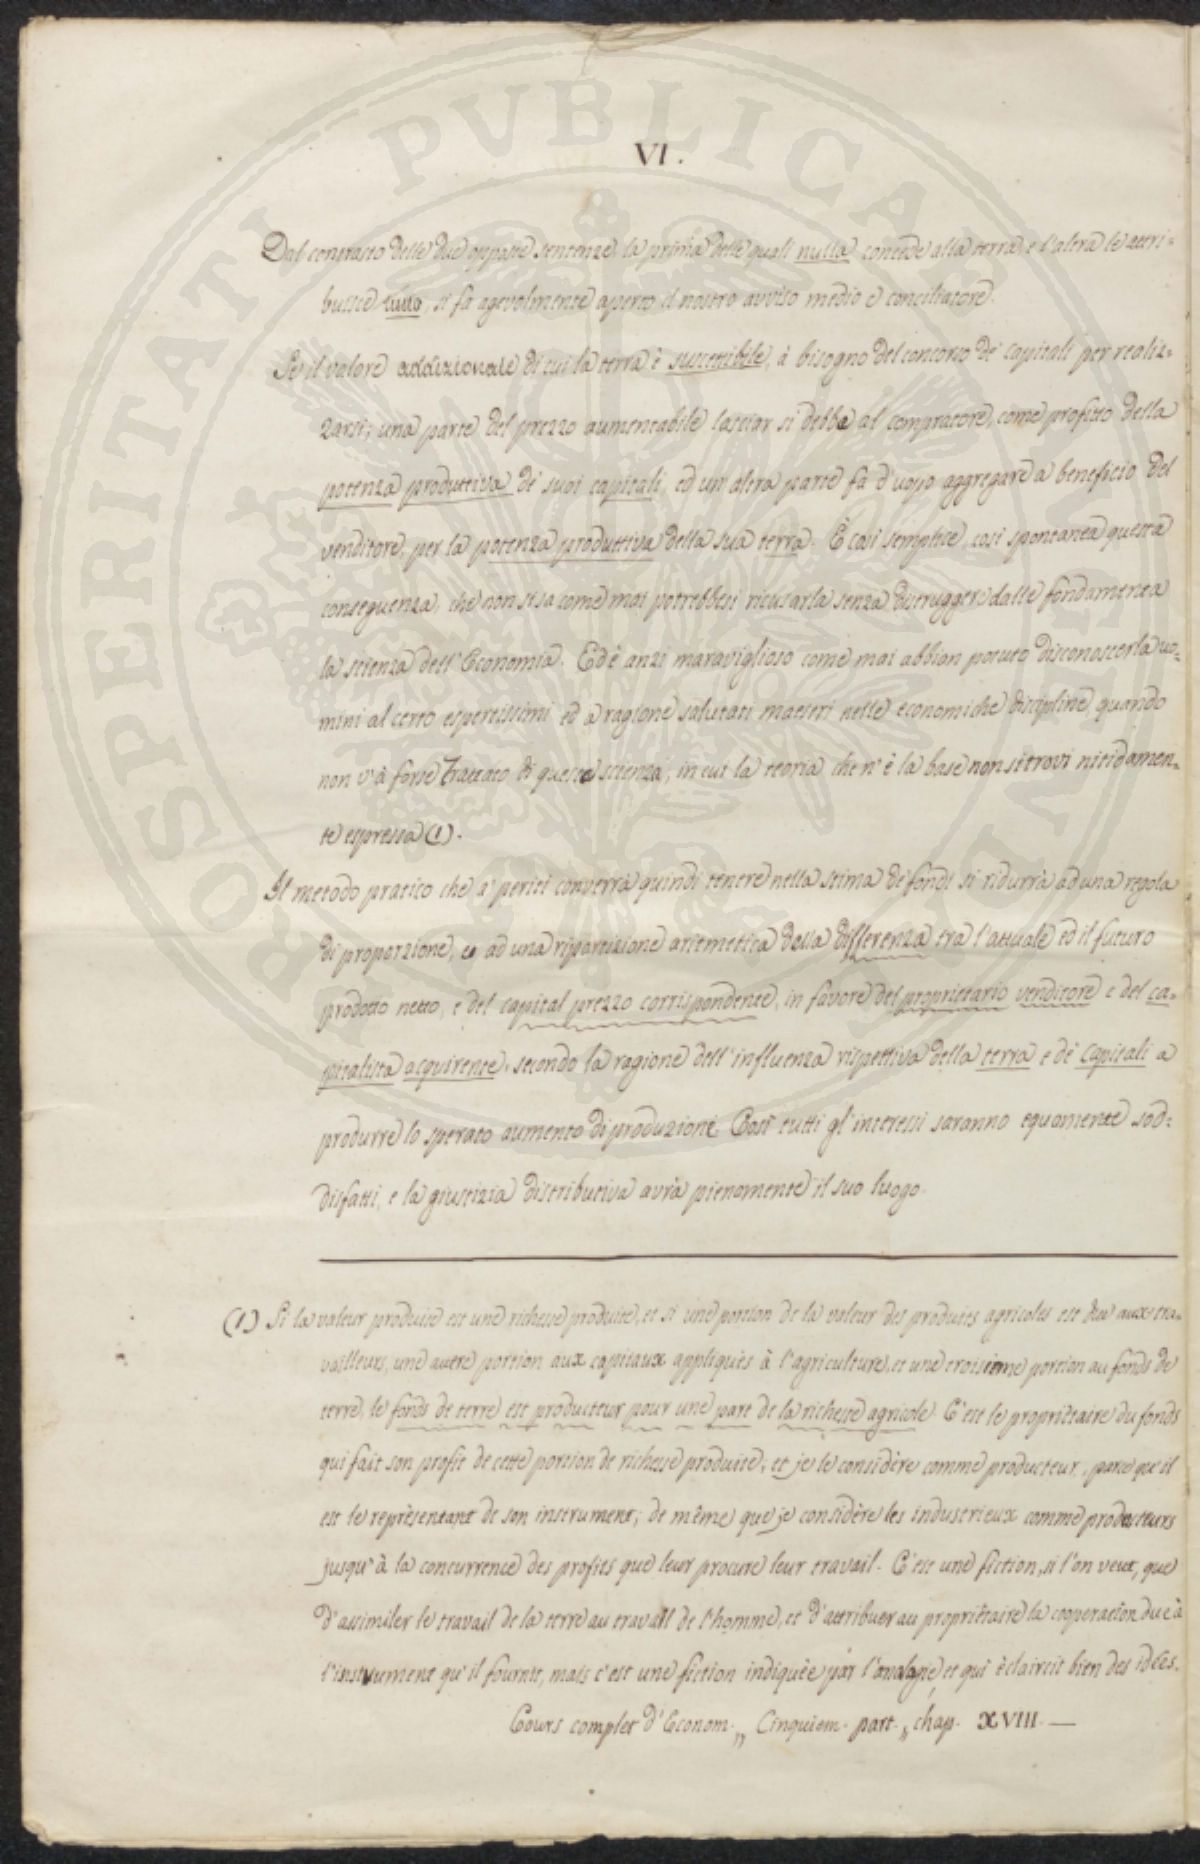 VI.
Dal contrasto delle due opposte sentenze, la prima delle quali nulla concede alla terra, e l'altra le attri=
buisce tutto, si fa agevolmente aperto il nostro avviso medio e conciliatore.
Se il valore addizionale di cui la terra è suscettibile, à bisogno del concorso de' capitali per realiz=
zarsi; una parte del prezzo aumentabile lasciar si debba al compratore, come profitto della
potenza produttiva de' suoi capitali, ed un'altra parte fa d'uopo aggregare a beneficio del
venditore, per la potenza produttiva della sua terra. È così semplice, così spontanea questa
conseguenza, che non si sa come mai potrebbesi ricusarla senza distruggere dalle fondamenta
la scienza dell'Economia. Ed è anzi maraviglioso come mai abbian potuto disconoscerla uo=
mini al certo espertissimi ed a ragione salutati maestri nelle economiche discipline, quando
non v'à forse Trattato di questa scienza, in cui la teoria che n'è la base non si trovi nitidamen=
te espressa (1).
Il metodo pratico che a' periti converrà quindi tenere nella stima de' fondi si ridurrà ad una regola
di proporzione, o ad una ripartizione aritmetica della differenza tra l'attuale ed il futuro
prodotto netto, e del capital prezzo corrispondente, in favore del proprietario venditore e del ca=
pitalista acquirente, secondo la ragione dell'influenza rispettiva della terra e de' capitali a
produrre lo sperato aumento di produzione. Così tutti gl'interessi saranno equamente sod=
disfatti, e la giustizia distributiva avrà pienamente il suo luogo.
(1) Si la valeur produite est une richesse produite, et si une portion de la valeur des produits agricoles est due aux tra=
vailleurs, une autre portion aux capitaux appliqués à l'agriculture, et une troisième portion au fonds de
terre, le fonds de terre est producteur pour une part de la richesse agricole. C'est le propriétaire du fonds
qui fait son profit de cette portion de richesse produite; et je le considère comme producteur, parce qu'il
est le représentant de son instrument; de même que je considère les industrieux comme producteurs
jusqu'à la concurrence des profits que leur procure leur travail. C'est une fiction, si l'on veut, que
d'assimiler le travail de la terre au travail de l'homme, et d'attribuer au propriétaire la coopération due à
l'instrument qu'il fournit, mais c'est une fiction indiquée par l'analogie, et qui éclaircit bien des idées.
Cours complet d'Econom. „ Cinquiem. part. „ chap. XVIII. —
PROSPERITATI PVBLICAE